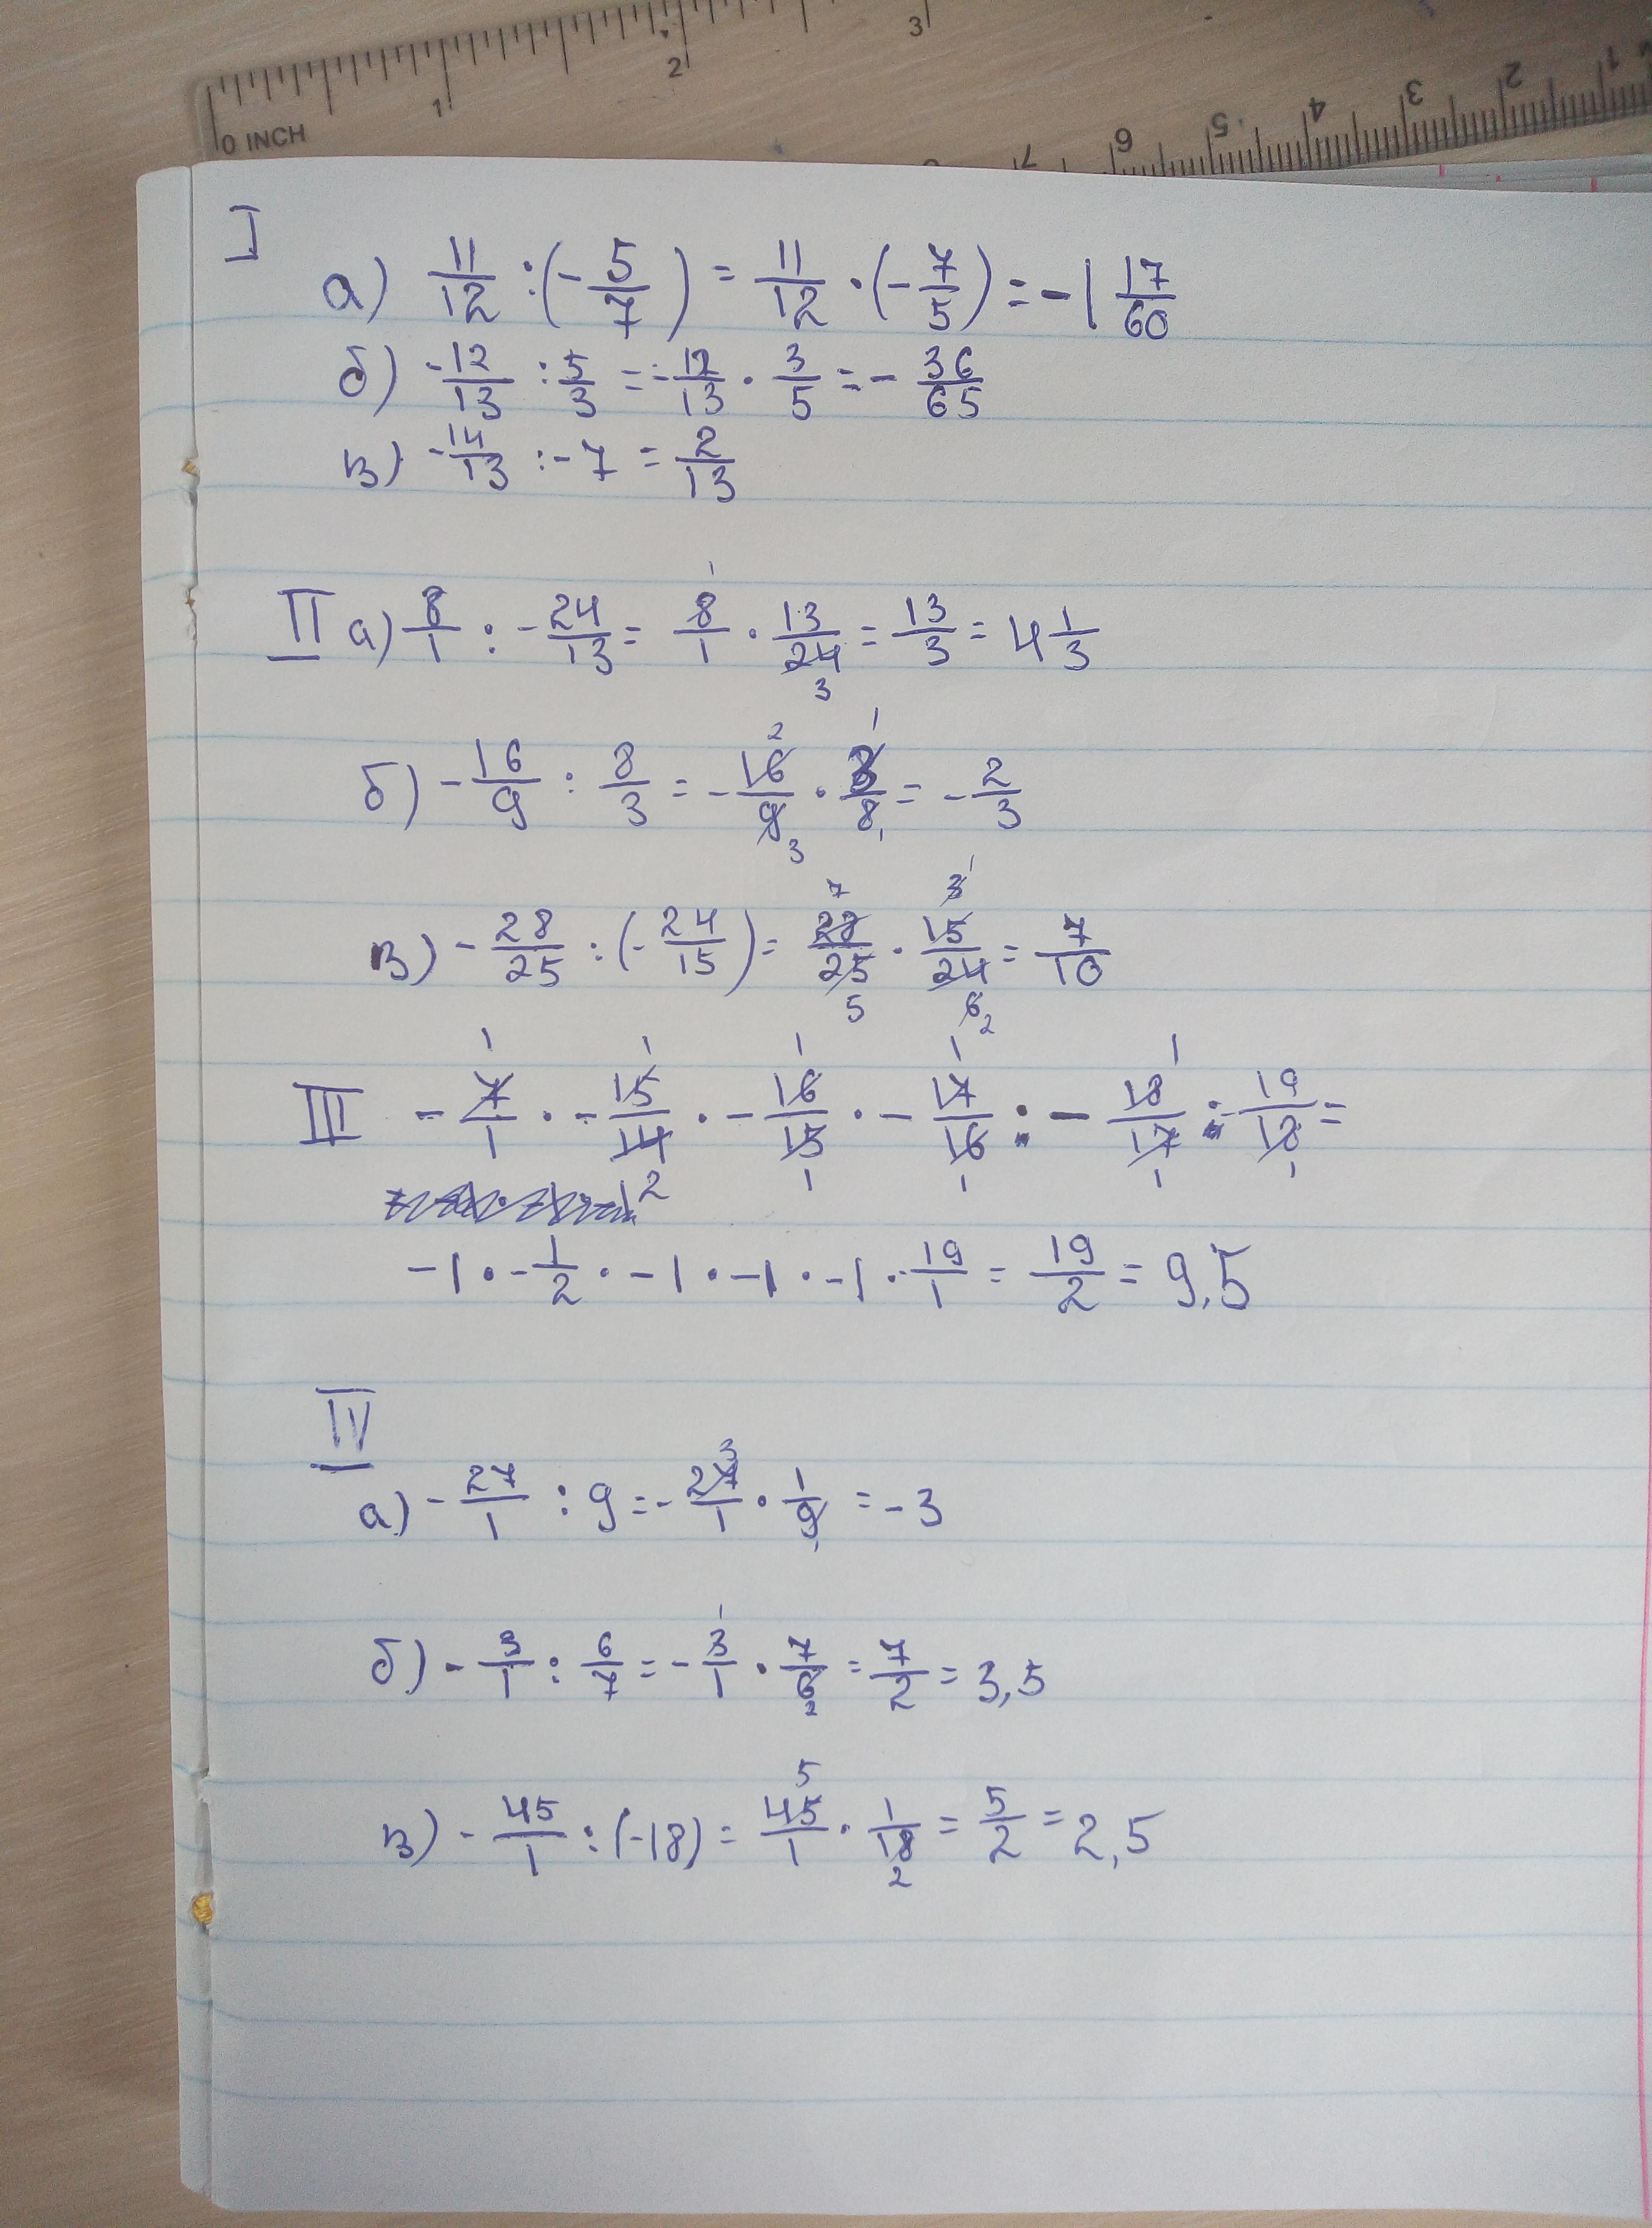 0 INCH 1 2 3
1 2 3 4 5 6 7
I
а) 11/12 : (- 5/7) = 11/12 · (- 7/5) = - 1 17/60
б) - 12/13 : 5/3 = - 12/13 · 3/5 = - 36/65
в) - 14/13 : - 7 = 2/13
1
II а) 8/1 : - 24/13 = 8/1 · 13/24 = 13/3 = 4 1/3
3
2 1
б) - 16/9 : 8/3 = - 16/9 · 3/8 = - 2/3
3 1
7 3 1
в) - 28/25 : (- 24/15) = 28/25 · 15/24 = 7/10
5 6 2
1 1 1 1 1
III - 7/1 · - 15/14 · - 16/15 · - 17/16 : - 18/17 : 19/18 =
2 1 1 1 1
-1 · - 1/2 · -1 · -1 · -1 · - 19/1 = 19/2 = 9,5
IV
3
а) - 27/1 : 9 = - 27/1 · 1/9 = - 3
1
б) - 3/1 : 6/7 = - 3/1 · 7/6 = 7/2 = 3,5
2
5
в) - 45/1 : (-18) = 45/1 · 1/18 = 5/2 = 2,5
2